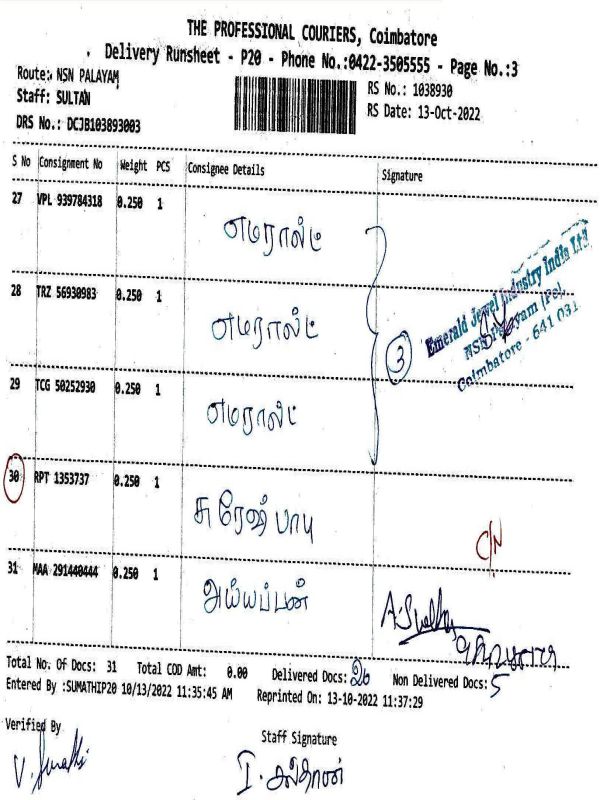 THE PROFESSIONAL COURIERS, Coimbatore
Delivery Runsheet - P20 - Phone No.:0422-3505555 - Page No.:3
Route: NSN PALAYAM
RS No.: 1038930
Staff: SULTAN
RS Date: 13-Oct-2022
DRS No.: DCJB103893003
S No Consignment No Weight PCS Consignee Details Signature
27 VPL 939784318 0.250 1 எமரால்ட்
28 TRZ 56930983 0.250 1 எமரால்ட்
29 TCG 50252930 0.250 1 எமரால்ட்
3
Emerald Jewel Industry India Ltd
NSN Palayam (Po),
Coimbatore - 641 031
30 RPT 1353737 0.250 1 சுரேஷ் பாபு C/N
31 MAA 291440444 0.250 1 அய்யப்பன்
Total No. Of Docs: 31 Total COD Amt: 0.00 Delivered Docs: 26 Non Delivered Docs: 5
Entered By :SUMATHIP20 10/13/2022 11:35:45 AM Reprinted On: 13-10-2022 11:37:29
Verified By Staff Signature
I. சுல்தான்